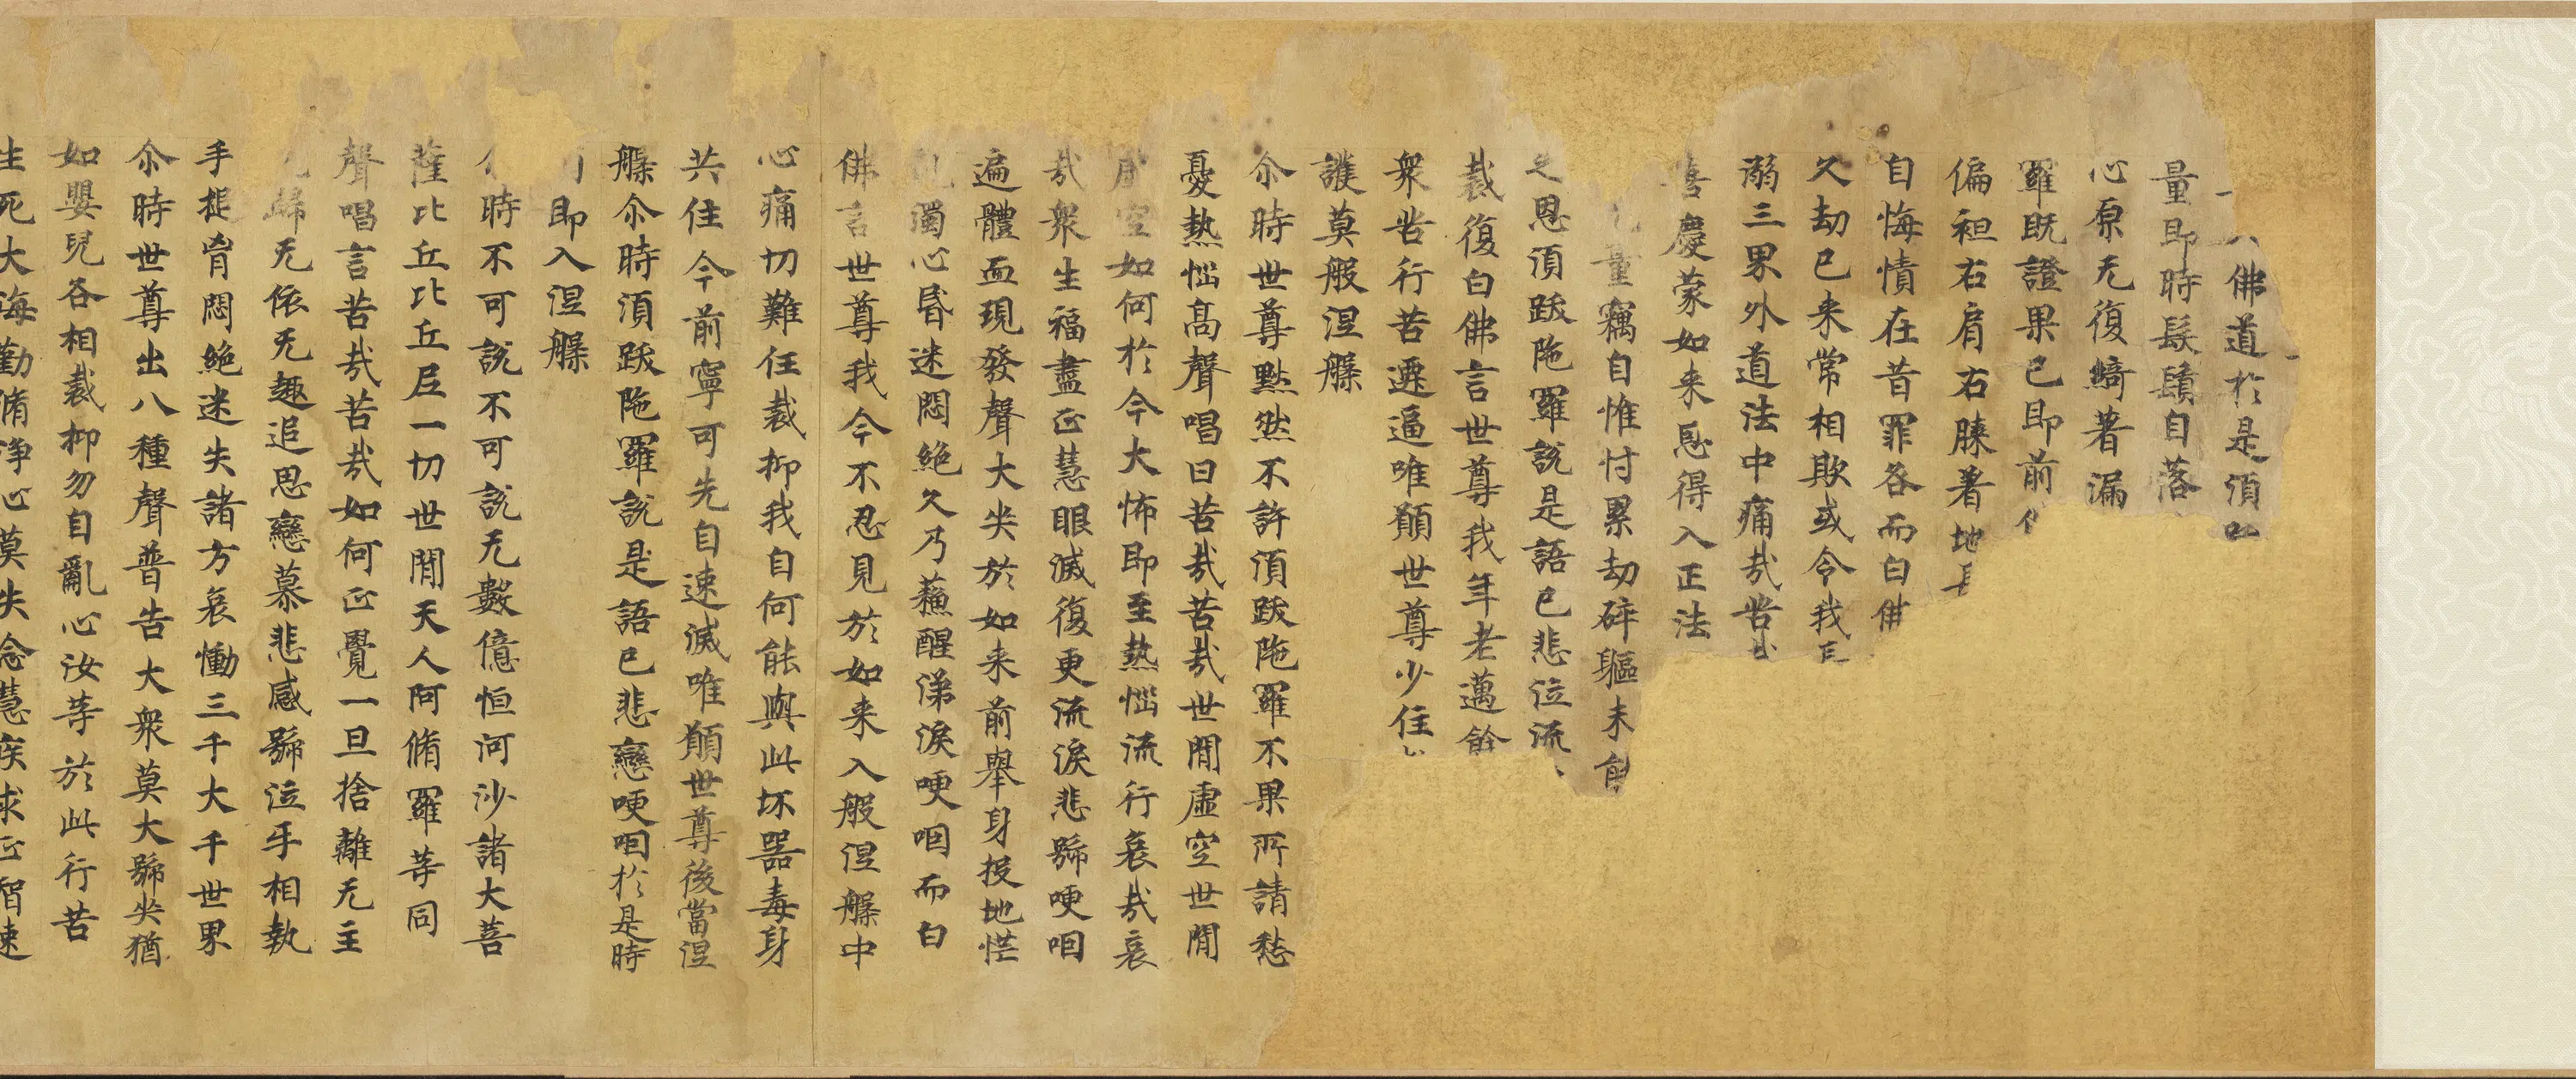 佛道於是湏
量即時鬚鬚自落
心原无復綺著漏
羅既證果已即前
偏袒右肩右膝著地
自悔憒在昔罪各而白佛
久劫已来常相欺或令我
溺三界外道法中痛㢤苦
喜慶蒙如来恩得入正法
量竊自惟忖累劫碎軀未
之恩湏跋陁羅說是語已悲泣流
裁復白佛言世尊我年老邁餘
衆苦行苦遷逼唯願世尊少住
護莫般涅槃
尒時世尊黙然不許湏跋陁羅不果所請愁
憂熱惱髙聲唱曰苦㢤苦㢤世閒虛空世閒
空如何於今大怖即至熱惱流行哀㢤哀
㢤衆生福盡正慧眼滅復更流淚悲號哽咽
遍體血現發聲大哭於如来前舉身投地恾
濁心昏迷悶絶久乃蘓醒涕淚哽咽而白
佛言世尊我今不忍見於如来入般涅槃中
心痛切難任裁抑我自何能與此坏器毒身
共住今前寧可先自速滅唯願世尊後當涅
槃尒時湏跋陁羅說是語已悲戀哽咽於是時
即入涅槃
時不可說不可說无數億恒河沙諸大菩
薩比丘比丘尼一切世閒天人阿脩羅等同
聲唱言苦㢤苦㢤如何正覺一旦捨離无主
歸无依无趣追思戀慕悲感號泣手相執
手搥胷悶絶迷失諸方哀慟三千大千世界
尒時世尊出八種聲普告大衆莫大號哭猶
如嬰兒各相裁抑勿自亂心汝等於此行苦
生死大海勤脩浄心莫失念慧疾求正智速